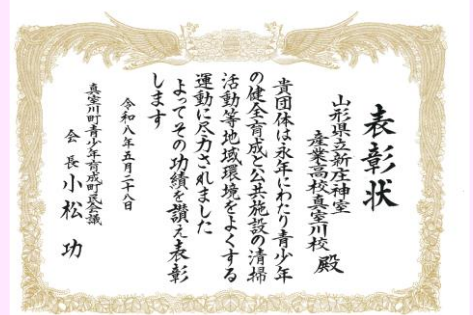 表彰状
山形県立新庄神室
産業高校真室川校 殿
貴団体は永年にわたり青少年
の健全育成と公共施設の清掃
活動等地域環境をよくする
運動に尽力されました
よってその功績を讃え表彰
します
令和八年五月二十八日
真室川町青少年育成町民会議
会長 小松 功